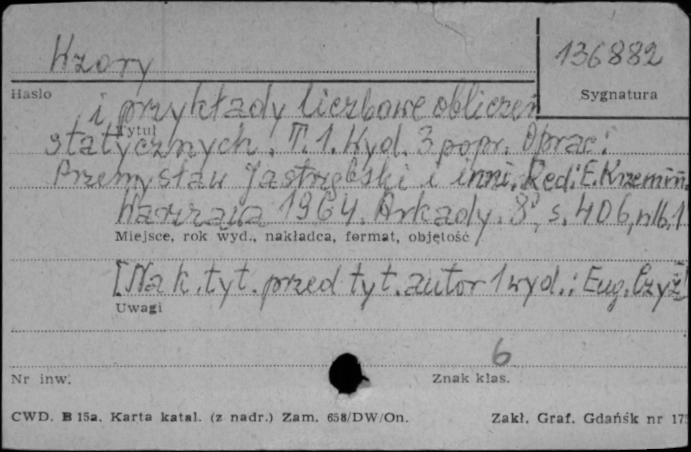 Wzory
136882
Hasło
Sygnatura
i przykłady liczbowe obliczeń
Tytuł
statycznych. T.1. Wyd. 3 popr. Oprac.:
Przemysław Jastrzębski i inni. Red: E. Krzemiń.
Warszawa 1964. Arkady. 8°, s. 406, nlb. 1
Miejsce, rok wyd., nakładca, format, objętość
[Na k. tyt. przed tyt. autor 1 wyd.: Eug. Czyż
Uwagi
6
Nr inw.
Znak klas.
CWD. B 15a. Karta katal. (z nadr.) Zam. 658/DW/On.
Zakł. Graf. Gdańsk nr 17